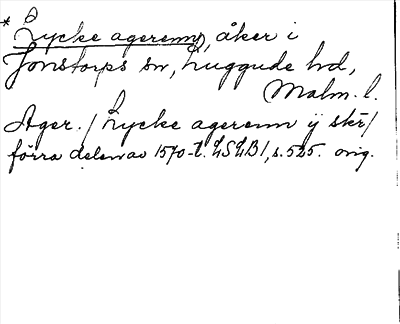 * Lycke agerenn, åker i
Jonstorps sn, Luggude hd,
Malm. l.
Ager. / Lycke agerenn ÿ skr/
förra delen av 1570-t. LSLB1, s. 525. orig.